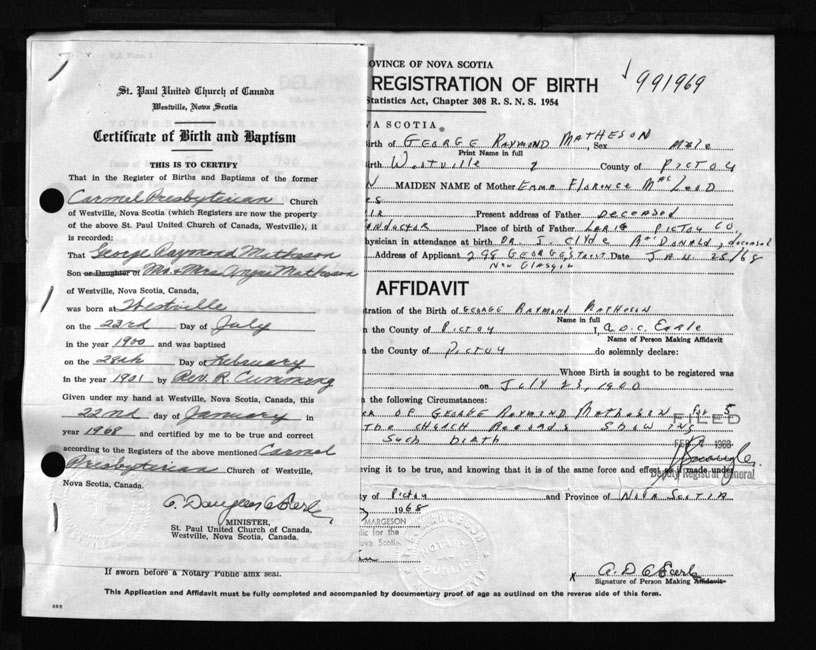 St. Paul United Church of Canada
Westville, Nova Scotia
Certificate of Birth and Baptism
THIS IS TO CERTIFY
That in the Register of Births and Baptisms of the former
Carmel Presbyterian Church
of Westville, Nova Scotia (which Registers are now the property
of the above St. Paul United Church of Canada, Westville), it
is recorded:
That George Raymond Matheson
Son or Daughter of Mr. & Mrs. Angus Matheson
of Westville, Nova Scotia, Canada,
was born at Westville
on the 23rd Day of July
in the year 1900 and was baptised
on the 28th Day of February
in the year 1901 by Rev. R. Cumming
Given under my hand at Westville, Nova Scotia, Canada, this
22nd day of January in
year 1968 and certified by me to be true and correct
according to the Registers of the above mentioned Carmel
Presbyterian Church of Westville,
Nova Scotia, Canada.
MINISTER,
St. Paul United Church of Canada,
Westville, Nova Scotia, Canada.
OVINCE OF NOVA SCOTIA
REGISTRATION OF BIRTH
991969
Statistics Act, Chapter 308 R. S. N. S. 1954
VA SCOTIA
irth of GEORGE RAYMOND MATHESON Sex MALE
Print Name in full
irth Westville County of PICTOU
N MAIDEN NAME of Mother EMMA FLORENCE MacLEOD
Present address of Father DECEASED
NDUCTOR Place of birth of Father PICTOU CO.
hysician in attendance at birth DR. J. CLYDE MacDONALD, deceased
Address of Applicant 298 GEORGE STREET Date JAN. 25/68
NEW GLASGOW
AFFIDAVIT
tration of the Birth of GEORGE RAYMOND MATHESON
Name in full
n the County of PICTOU I, A.D.C. EARLE
Name of Person Making Affidavit
n the County of PICTOU do solemnly declare:
Whose Birth is sought to be registered was
on JULY 23, 1900
n the following Circumstances:
OF GEORGE RAYMOND MATHESON
THE CHURCH RECORDS SHOWING
SUCH BIRTH
FILED
1968
eving it to be true, and knowing that it is of the same force and effect as if made under
Deputy Registrar General
y of PICTOU and Province of NOVA SCOTIA
1968
MARGESON
lic for the
ova Scotia
A. D. C. Earle
Signature of Person Making Affidavit
If sworn before a Notary Public affix seal.
This Application and Affidavit must be fully completed and accompanied by documentary proof of age as outlined on the reverse side of this form.